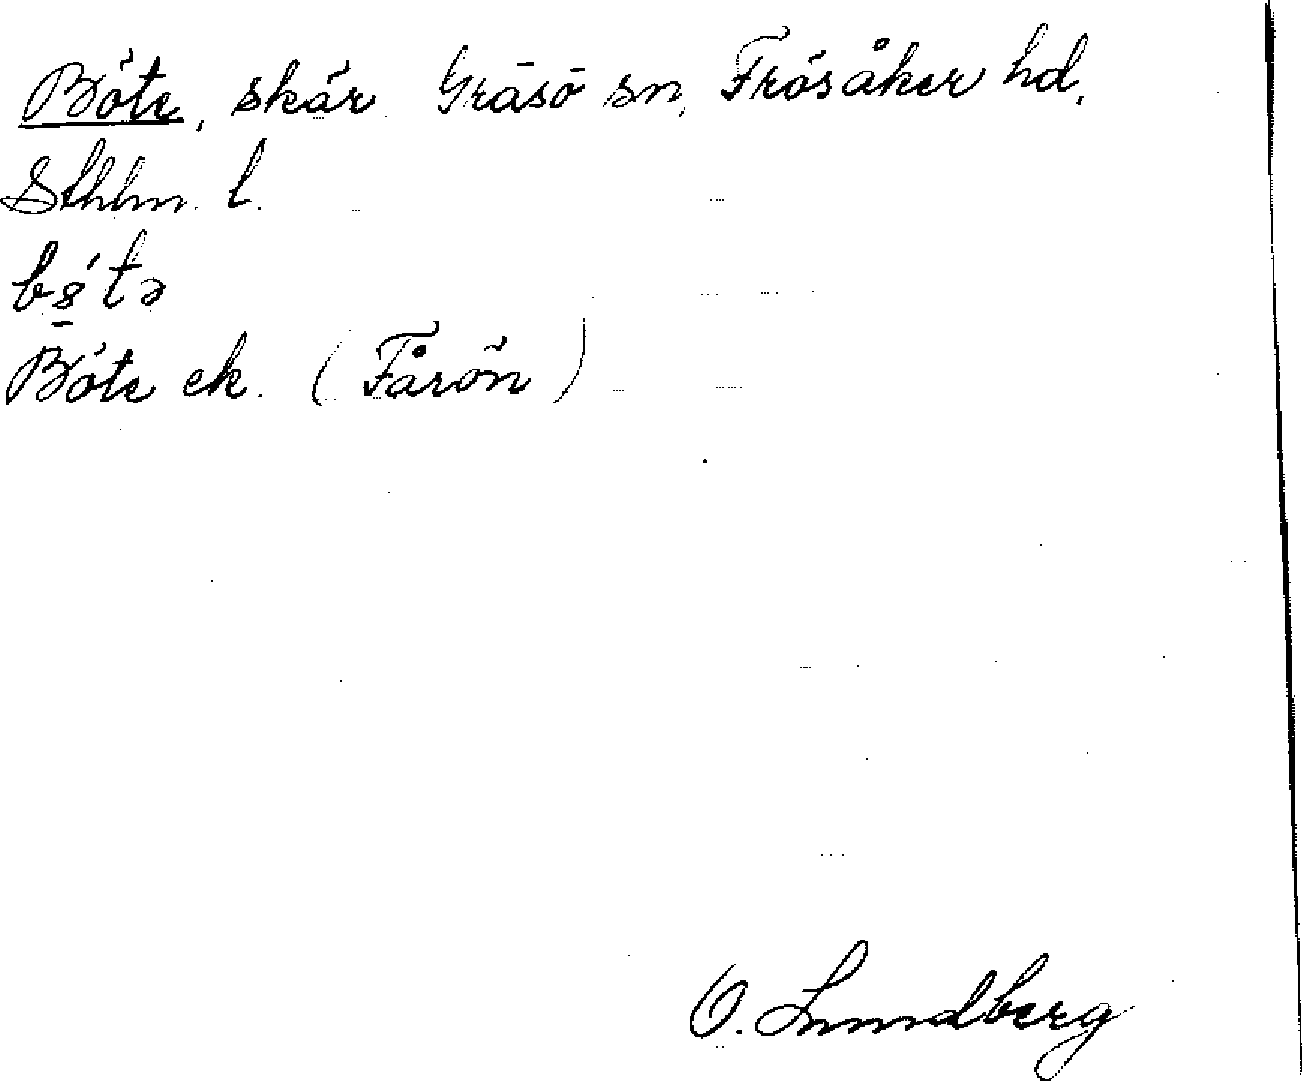 Böte, skär Gräsö sn, Frösåker hd,
Sthlm. l.
bö́tə
Böte ek. (Fårön)
O. Lundberg